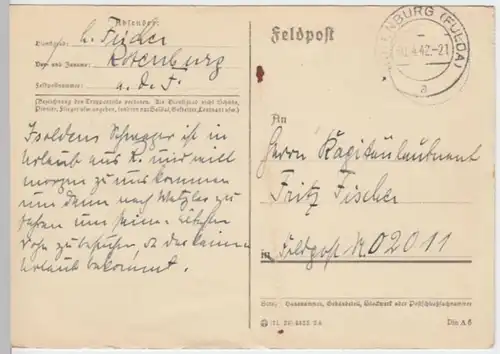 Absender:
Dienstgrad: H. Fischer
Vor- und Zuname: Rotenburg
Feldpostnummer: a. d. F.
(Bezeichnung des Truppenteils verboten. Als Dienstgrad nicht Schütze,
Pionier, Flieger usw. angeben, sondern nur Soldat, Gefreiter, Leutnant usw.)
Schwager ist in
Urlaub aus R. und will
morgen zu uns kommen
um dann nach Wetzlar zu
fahren um seine
zu besuchen, da der keinen
Urlaub bekommt.
Feldpost
ENBURG (FULDA)
4.42.-21
a
An
Herrn Kapitänleutnant
Fritz Fischer
in Feldpost Nr. 02011
Bitte: Hausnummer, Gebäudeteil, Stockwerk oder Postschließfachnummer
Din A 6